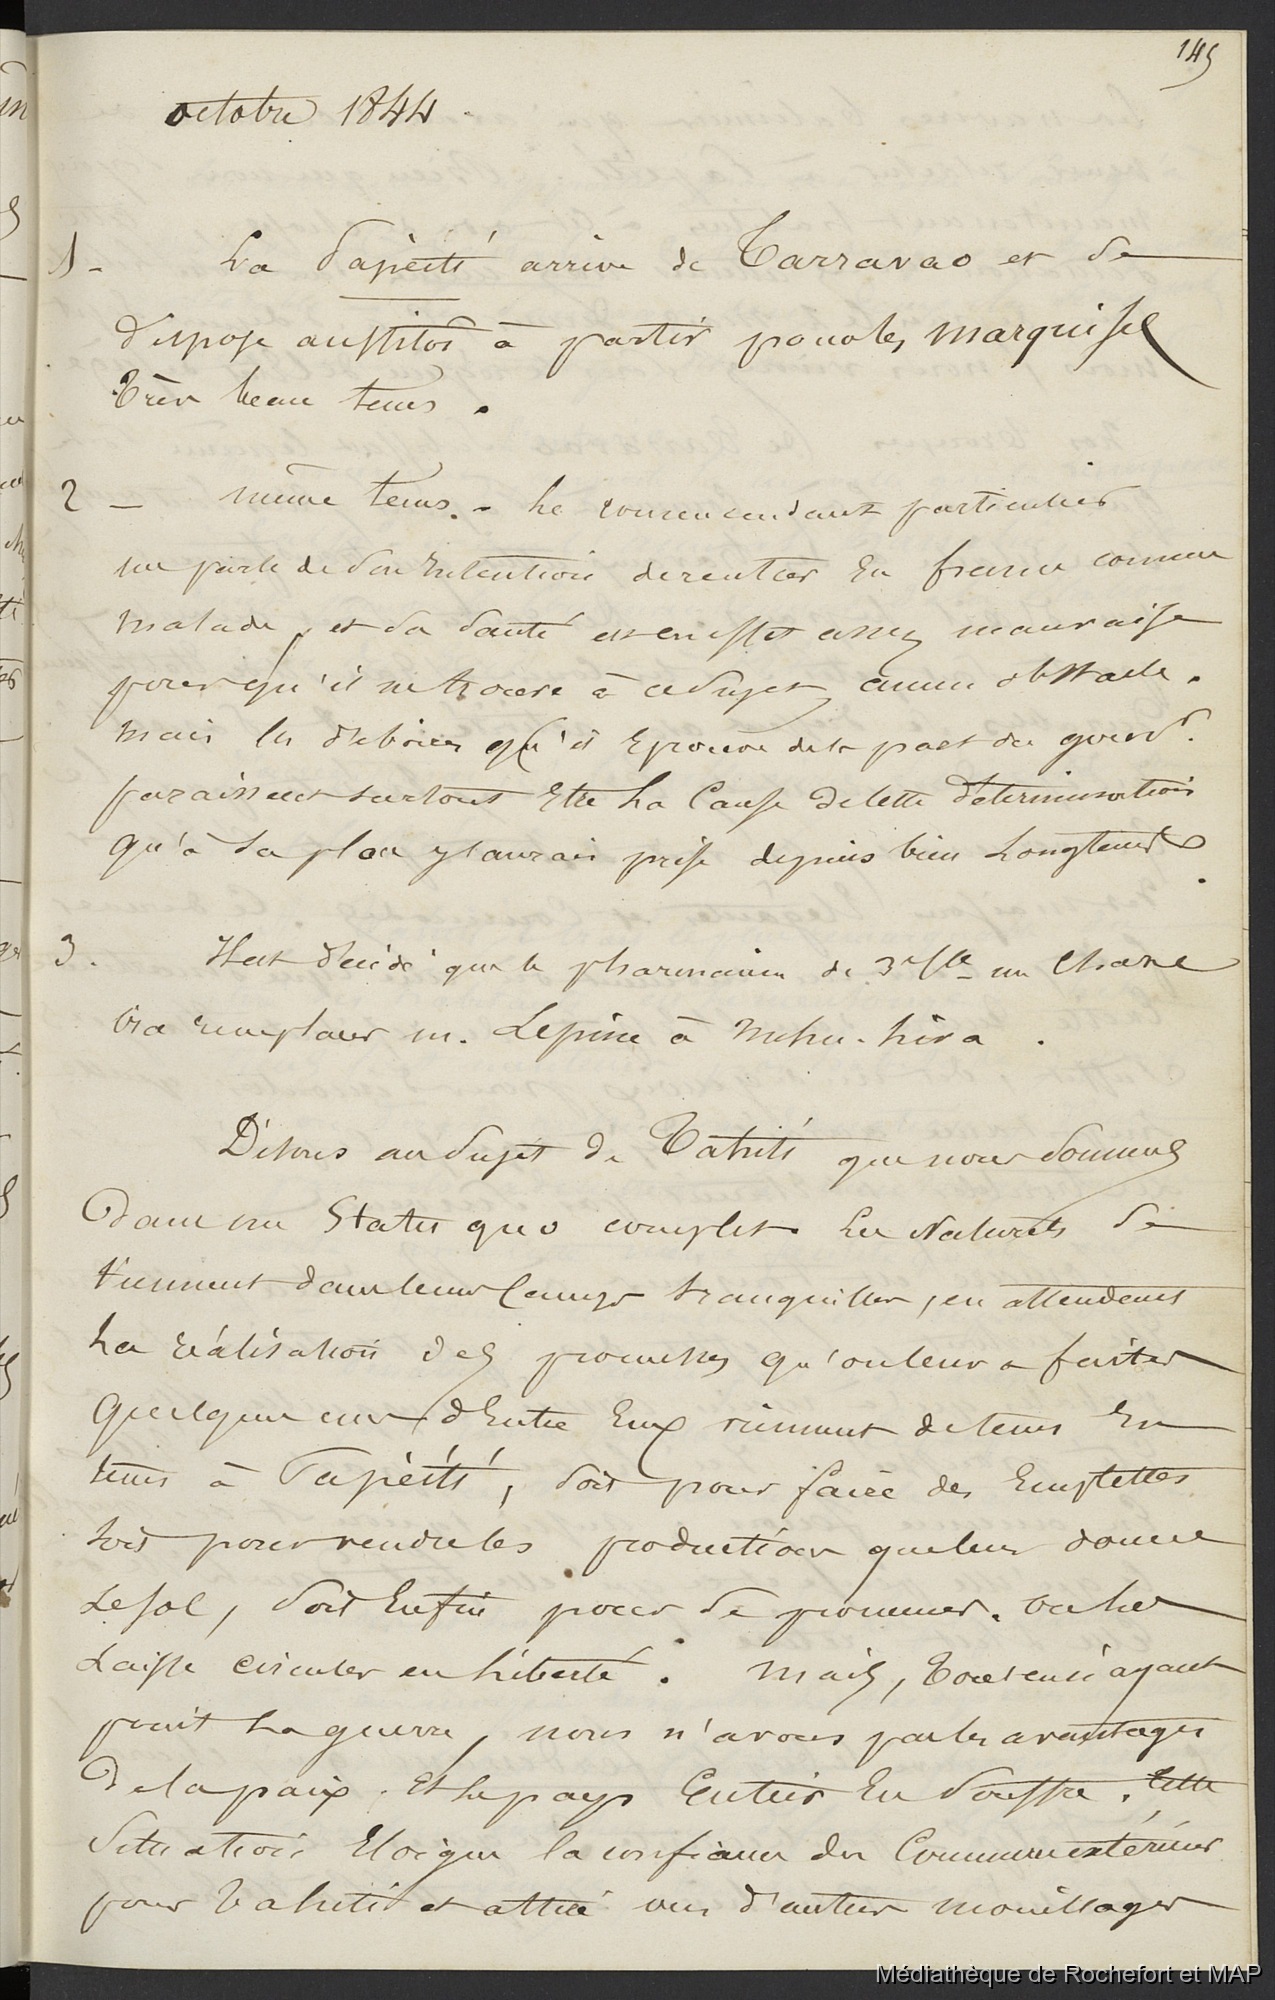 145
octobre 1844.
1 - La Papéiti arrive de Tarravao et se
dispose aussitôt à partir pour les marquises
très beau tems.
2 - même tems. - Le commandant particulier
me parle de son intention de rentrer en france comme
malade, et sa santé est en effet assez mauvaise
pour qu'il ne trouve à ce sujet aucun obstacle.
mais les déboires qu'il éprouve de la part du gouvr.
paraissent surtout être la cause de cette détermination
qu'à sa place j'aurais prise depuis bien longtems.
3. Il est décidé que le pharmacien de 3e Cle m
ira remplacer m. Lépine à Nuhu-hiva.
Disons au sujet de Tahiti que nous sommes
dans un Statu quo complet. Les Naturels se
tiennent dans leurs camps tranquilles, en attendant
la réalisation des promesses qu'on leur a faites
quelques uns d'entre eux viennent de tems en
tems à Papéïti, soit pour faire des emplettes
soit pour vendre les productions que leur donne
le sol, soit enfin pour se promener. on les
laisse circuler en liberté. mais, tout en n'ayant
point la guerre, nous n'avons pas les avantages
de la paix. Et le pays entier en souffre. Cette
situation éloigne la confiance du commerce extérieur
pour Tahiti et attire vers d'autres mouillages
Médiathèque de Rochefort et MAP